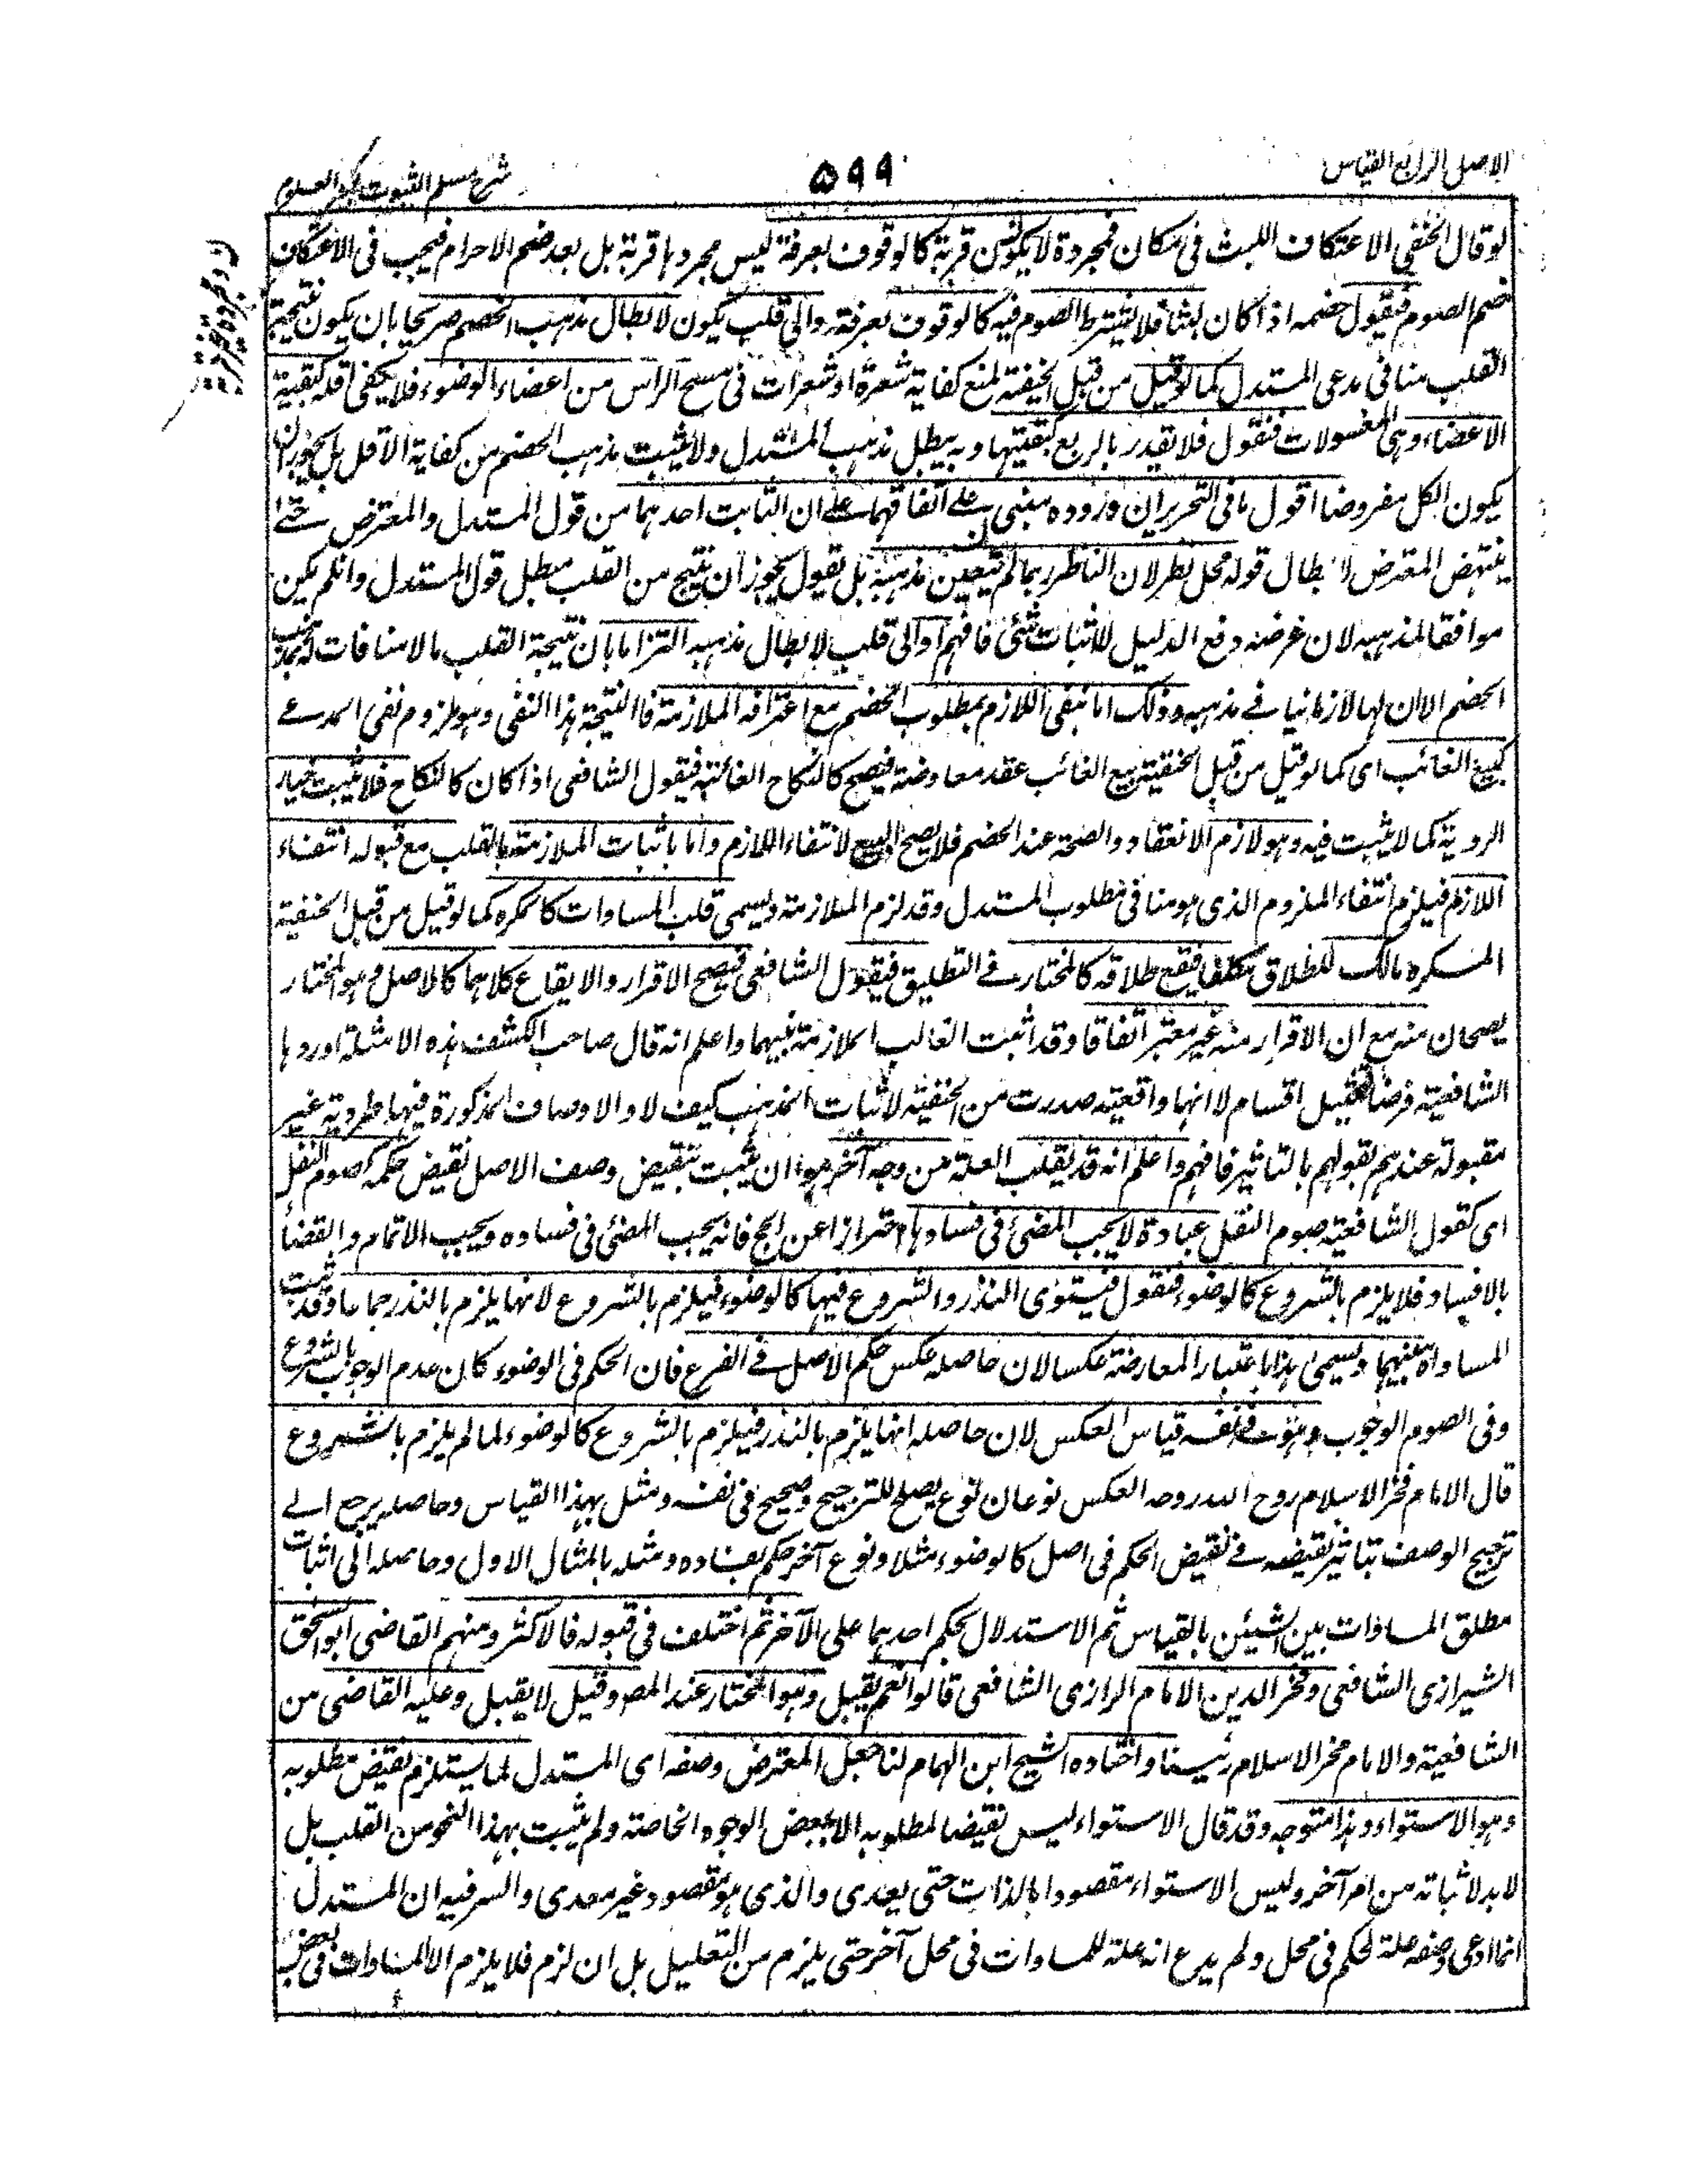 الاصل الرابع القیاس
۵۹۹
شرح مسلم الثبوت لبحر العلوم
لو قال الحنفی الاعتکاف اللبث فی مکان فمجردہ لا یکون قربۃ کالوقوف بعرفۃ لیس مجردہا قربۃ بل بعد ضم الاحرام فیجب فی الاعتکاف
ضم الصوم فیقول خصمہ اذا کان لبثا فلا یشترط الصوم فیہ کالوقوف بعرفۃ والی قلب یکون لابطال مذہب الخصم صریحا بان یکون نتیجۃ
القلب منافی مدعی المستدل کما لو قیل من قبل الحنفیۃ لمنع کفایۃ شعرۃ او شعرات فی مسح الراس من اعضاء الوضوء فلا یکفی اقلہ کبقیۃ
الاعضاء وہی المغسولات فنقول فلا یقدر بالربع کبقیتہا وبہ یبطل مذہب المستدل ولا یثبت مذہب الخصم من کفایۃ الاقل بل یجوز ان
یکون الکل مفروضا اقول ما فی التحریر ان ورودہ مبنی علے اتفاقہما علے ان الثابت احدہما من قول المستدل والمعترض حتے
ینتہض المعترض لابطال قولہ محل نظر لان الناظر ربما لم یتعین مذہبہ بل یقول یجوز ان ینتج من القلب مبطل قول المستدل وان لم یکن
موافقا لمذہبہ لان غرضہ دفع الدلیل لا اثبات شئی فافہم والی قلب لابطال مذہبہ التزاما بان نتیجۃ القلب مالا منافات لہ بمذہب
الخصم الا ان لہا لازما ینافے مذہبہ وذلک اما بنفی اللازم بمطلوب الخصم مع اعترافہ الملازمۃ فالنتیجۃ ہذا النفی وہو ملزوم نفی المدعے
کبیع الغائب ای کما لو قیل من قبل الحنفیۃ بیع الغائب عقد معاوضۃ فیصح کالنکاح الغائبۃ فیقول الشافعی اذا کان کالنکاح فلا یثبت خیار
الرویۃ کما لا یثبت فیہ وہو لازم الانعقاد والصحۃ عند الخصم فلا یصح البیع لانتفاء اللازم واما باثبات الملازمۃ بالقلب مع قبولہ انتفاء
اللازم فیلزم انتفاء الملزوم الذی ہو منافی مطلوب المستدل وقد لزم الملازمۃ ویسمی قلب المساوات کالمکرہ کما لو قیل من قبل الحنفیۃ
المکرہ مالک للطلاق مکلف فیقع طلاقہ کالمختار فے التطلیق فیقول الشافعی فیصح الاقرار والایقاع کلاہما کالاصل وہو المختار
یصحان منہ مع ان الاقرار منہ غیر معتبر اتفاقا وقد اثبت القالب الملازمۃ بینہما واعلم انہ قال صاحب الکشف ہذہ الامثلۃ اوردہا
الشافعیۃ فرضا لتمثیل اقسام لا انہا واقعیۃ صدرت من الحنفیۃ لاثبات المذہب کیف لا والاوصاف المذکورۃ فیہا طردیۃ غیر
مقبولۃ عندہم لقولہم بالتاثیر فافہم واعلم انہ قد یقلب العلۃ من وجہ آخر ہو ان یثبت بنقیض وصف الاصل نقیض حکمہ کصوم النفل
ای کقول الشافعیۃ صوم النفل عبادۃ لا یجب المضئ فی فسادہا احترازا عن الحج فانہ یجب المضئ فی فسادہ ویجب الاتمام والقضا
بالافساد فلا یلزم بالشروع کالوضوء فنقول فیستوی النذر والشروع فیہا کالوضوء فیلزم بالشروع لانہا یلزم بالنذر جماعا وقد ثبت
المساواۃ بینہما ویسمی ہذا باعتبار المعارضۃ عکسا لان حاصلہ عکس حکم الاصل فے الفرع فان الحکم فی الوضوء کان عدم الوجوب بالشروع
وفی الصوم الوجوب وہو قیاس العکس لان حاصلہ انہا یلزم بالنذر فیلزم بالشروع کالوضوء لما لم یلزم بالشروع
قال الامام فخر الاسلام روح اللہ روحہ العکس نوعان نوع یصلح للترجیح وصحیح فی نفسہ ومثل بہذا القیاس وحاصلہ یرجع الے
ترجیح الوصف بتاثیر نقیضہ فے نقیض الحکم فی اصل کالوضوء مثلا ونوع آخر حکم بفسادہ ومثلہ بالمثال الاول وحاصلہ الی اثبات
مطلق المساوات بین الشیئین بالقیاس ثم الاستدلال بحکم احدہما علی الآخر ثم اختلف فی قبولہ فالاکثر ومنہم القاضی ابو اسحق
الشیرازی الشافعی وفخر الدین الامام الرازی الشافعی قالوا نعم یقبل وہو المختار عند المصر وقیل لا یقبل وعلیہ القاضی من
الشافعیۃ والامام فخر الاسلام رئیسنا واختارہ الشیخ ابن الہمام لنا جعل المعترض وصفہ ای المستدل لما یستلزم نقیض مطلوبہ
وہو الاستواء وہذا متوجہ وقد قال الاستواء لیس نقیضا لمطلوبہ الا ببعض الوجوہ الخاصۃ ولم یثبت بہذا النحو من القلب بل
لا بد لاثباتہ من امر آخر ولیس الاستواء مقصودا بالذات حتی یعدی والذی ہو مقصود غیر معدی والسر فیہ ان المستدل
انما ادعی وصفہ علۃ لحکم فی محل ولم یدع انہ علۃ للمساوات فی محل آخر حتی یلزم من التعلیل بل ان لزم فلا یلزم الا المساوات فی بعض